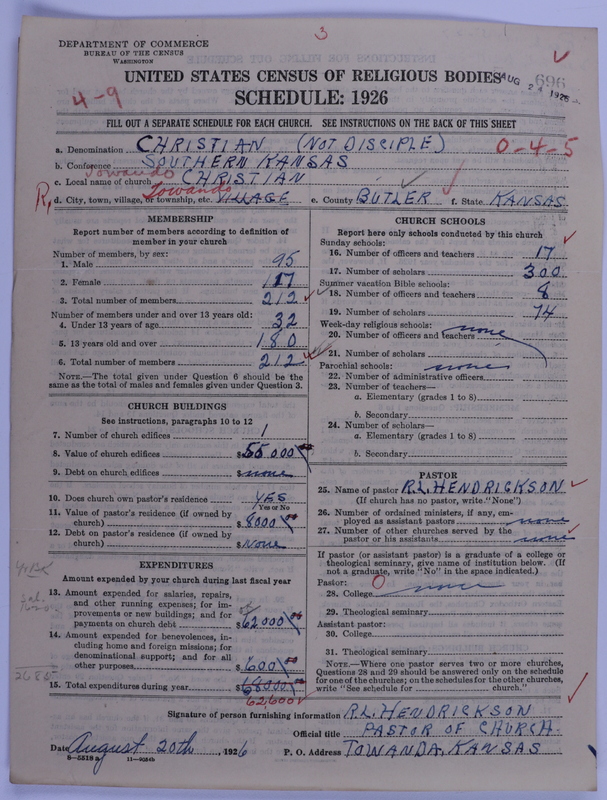 3
DEPARTMENT OF COMMERCE
BUREAU OF THE CENSUS
WASHINGTON
UNITED STATES CENSUS OF RELIGIOUS BODIES
AUG 24 1926
696
4-9
SCHEDULE: 1926
FILL OUT A SEPARATE SCHEDULE FOR EACH CHURCH. SEE INSTRUCTIONS ON THE BACK OF THIS SHEET
a. Denomination CHRISTIAN (NOT DISCIPLE) 0-4-5
b. Conference SOUTHERN KANSAS
c. Local name of church Towanda CHRISTIAN
R, d. City, town, village, or township, etc. Towanda VILLAGE e. County BUTLER f. State KANSAS
MEMBERSHIP
Report number of members according to definition of
member in your church
Number of members, by sex:
1. Male 95
2. Female 117
3. Total number of members 212
Number of members under and over 13 years old:
4. Under 13 years of age 32
5. 13 years old and over 180
6. Total number of members 212
NOTE.—The total given under Question 6 should be the
same as the total of males and females given under Question 3.
CHURCH BUILDINGS
See instructions, paragraphs 10 to 12
7. Number of church edifices 1
8. Value of church edifices $55000
9. Debt on church edifices $none
10. Does church own pastor's residence YES
Yes or No
11. Value of pastor's residence (if owned by
church) $8000
12. Debt on pastor's residence (if owned by
church) $None
EXPENDITURES
Amount expended by your church during last fiscal year
13. Amount expended for salaries, repairs,
and other running expenses; for im-
provements or new buildings; and for
payments on church debt $62000
14. Amount expended for benevolences, in-
cluding home and foreign missions; for
denominational support; and for all
other purposes $600
15. Total expenditures during year $68000
62,600
CHURCH SCHOOLS
Report here only schools conducted by this church
Sunday schools:
16. Number of officers and teachers 17
17. Number of scholars 300
Summer vacation Bible schools:
18. Number of officers and teachers 8
19. Number of scholars 74
Week-day religious schools:
20. Number of officers and teachers none
21. Number of scholars
Parochial schools: none
22. Number of administrative officers
23. Number of teachers—
a. Elementary (grades 1 to 8)
b. Secondary
24. Number of scholars—
a. Elementary (grades 1 to 8)
b. Secondary
PASTOR
25. Name of pastor R.L. HENDRICKSON
(If church has no pastor, write "None")
26. Number of ordained ministers, if any, em-
ployed as assistant pastors none
27. Number of other churches served by the
pastor or his assistants none
If pastor (or assistant pastor) is a graduate of a college or
theological seminary, give name of institution below. (If
not a graduate, write "No" in the space indicated.)
Pastor: 0
28. College none
29. Theological seminary
Assistant pastor:
30. College
31. Theological seminary
NOTE.—Where one pastor serves two or more churches,
Questions 28 and 29 should be answered only on the schedule
for one of the churches; on the schedules for the other churches,
write "See schedule for church."
Signature of person furnishing information R.L. HENDRICKSON
Official title PASTOR OF CHURCH.
Date August 20th, 1926 P. O. Address TOWANDA, KANSAS
8-5518a 11-9024b